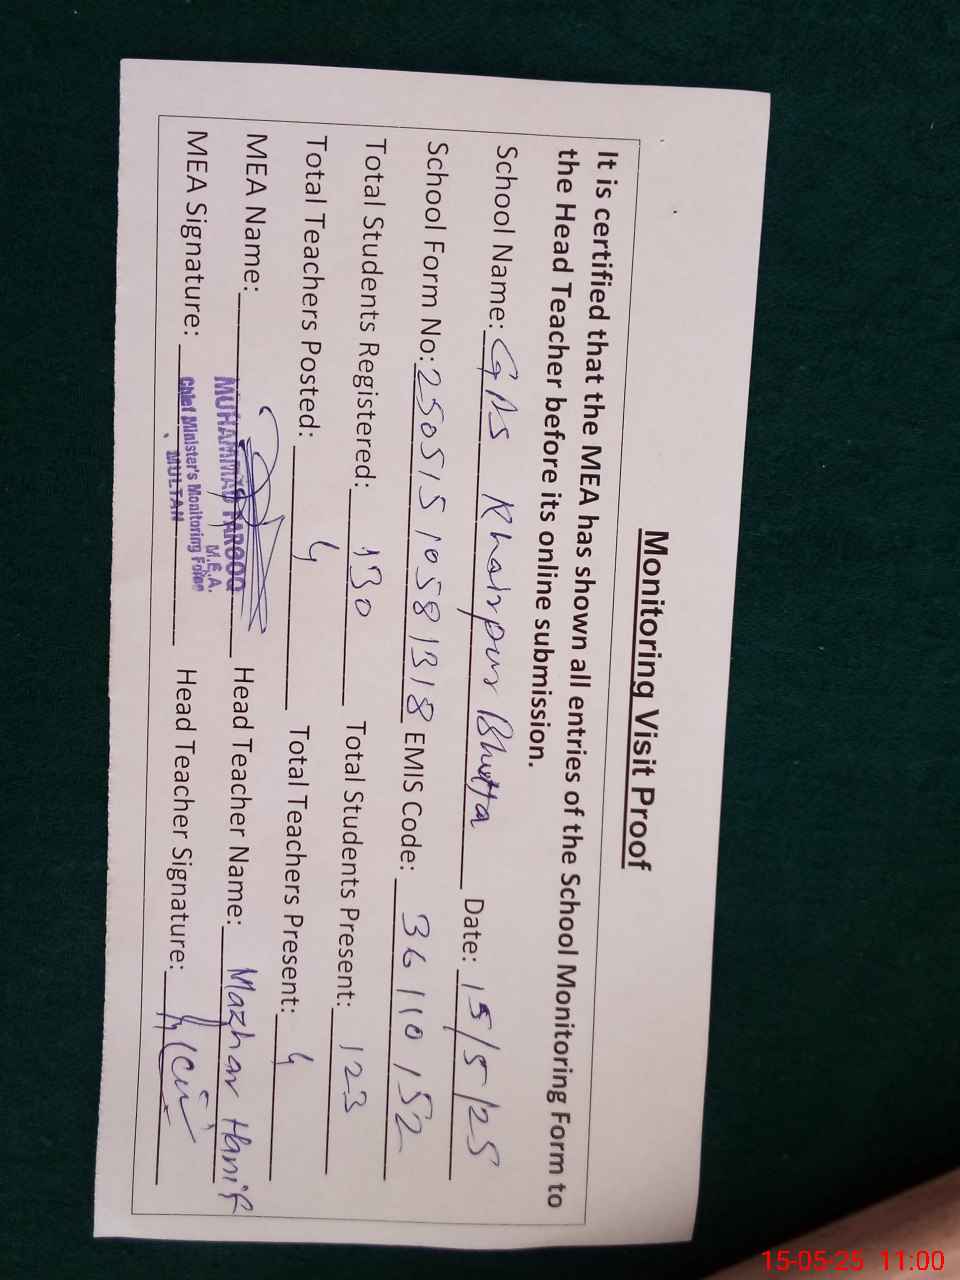 Monitoring Visit Proof
It is certified that the MEA has shown all entries of the School Monitoring Form to
the Head Teacher before its online submission.
School Name: GPS Khairpur Bhutta Date: 15/5/25
School Form No: 25051510581318 EMIS Code: 36110152
Total Students Registered: 130 Total Students Present: 123
Total Teachers Posted: 4 Total Teachers Present: 4
MEA Name: MUHAMMAD FAROOQ Head Teacher Name: Mazhar Hanif
M.E.A.
MEA Signature: Chief Minister's Monitoring Force Head Teacher Signature:
MULTAN
15-05-25 11:00